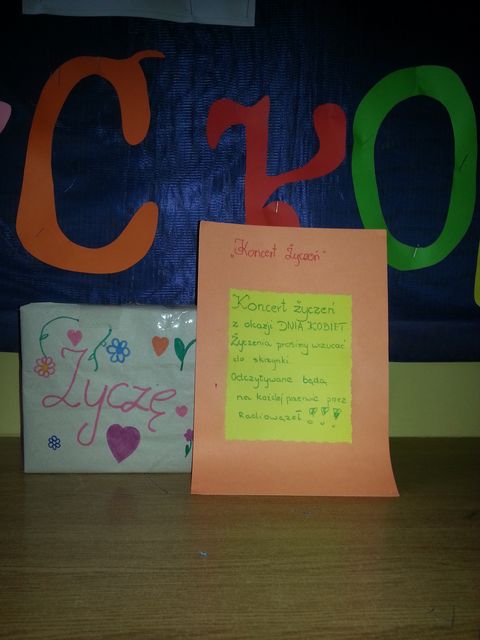 CKO
„Koncert Życzeń"
Koncert życzeń
z okazji DNIA KOBIET
Życzenia prosimy wrzucać
do skrzynki.
Odczytywane będą
na każdej przerwie przez
Radiowęzeł !!!
Życzę